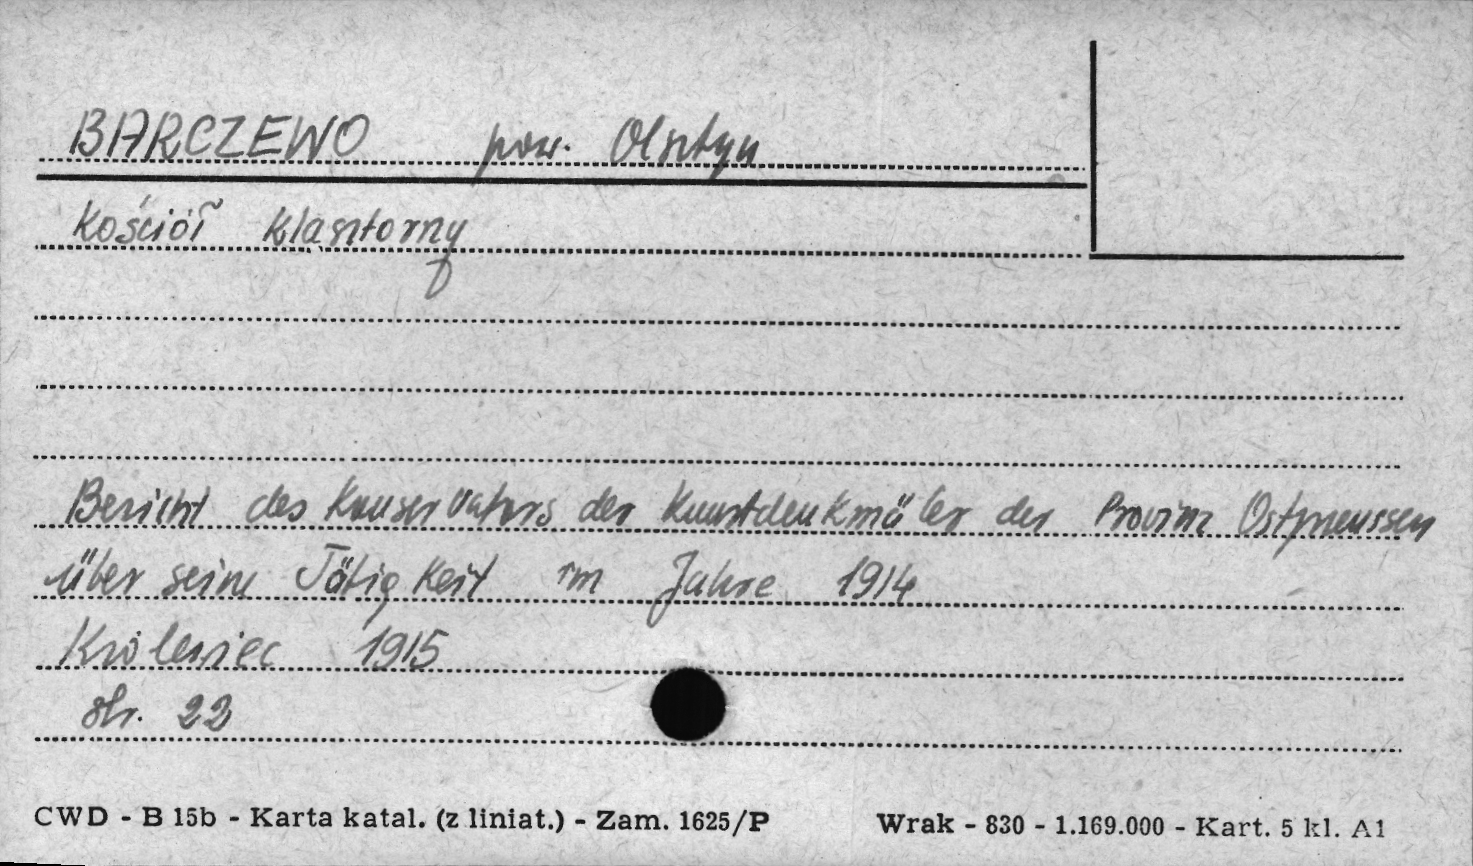 BARCZEWO pow. Olsztyn
Kościół klasztorny
Bericht des Konservators der Kunstdenkmäler der Provinz Ostpreussen
über seine Tätigkeit im Jahre 1914
Królewiec 1915
str. 22
CWD - B 15b - Karta katal. (z liniat.) - Zam. 1625/P
Wrak - 830 - 1.169.000 - Kart. 5 kl. A1